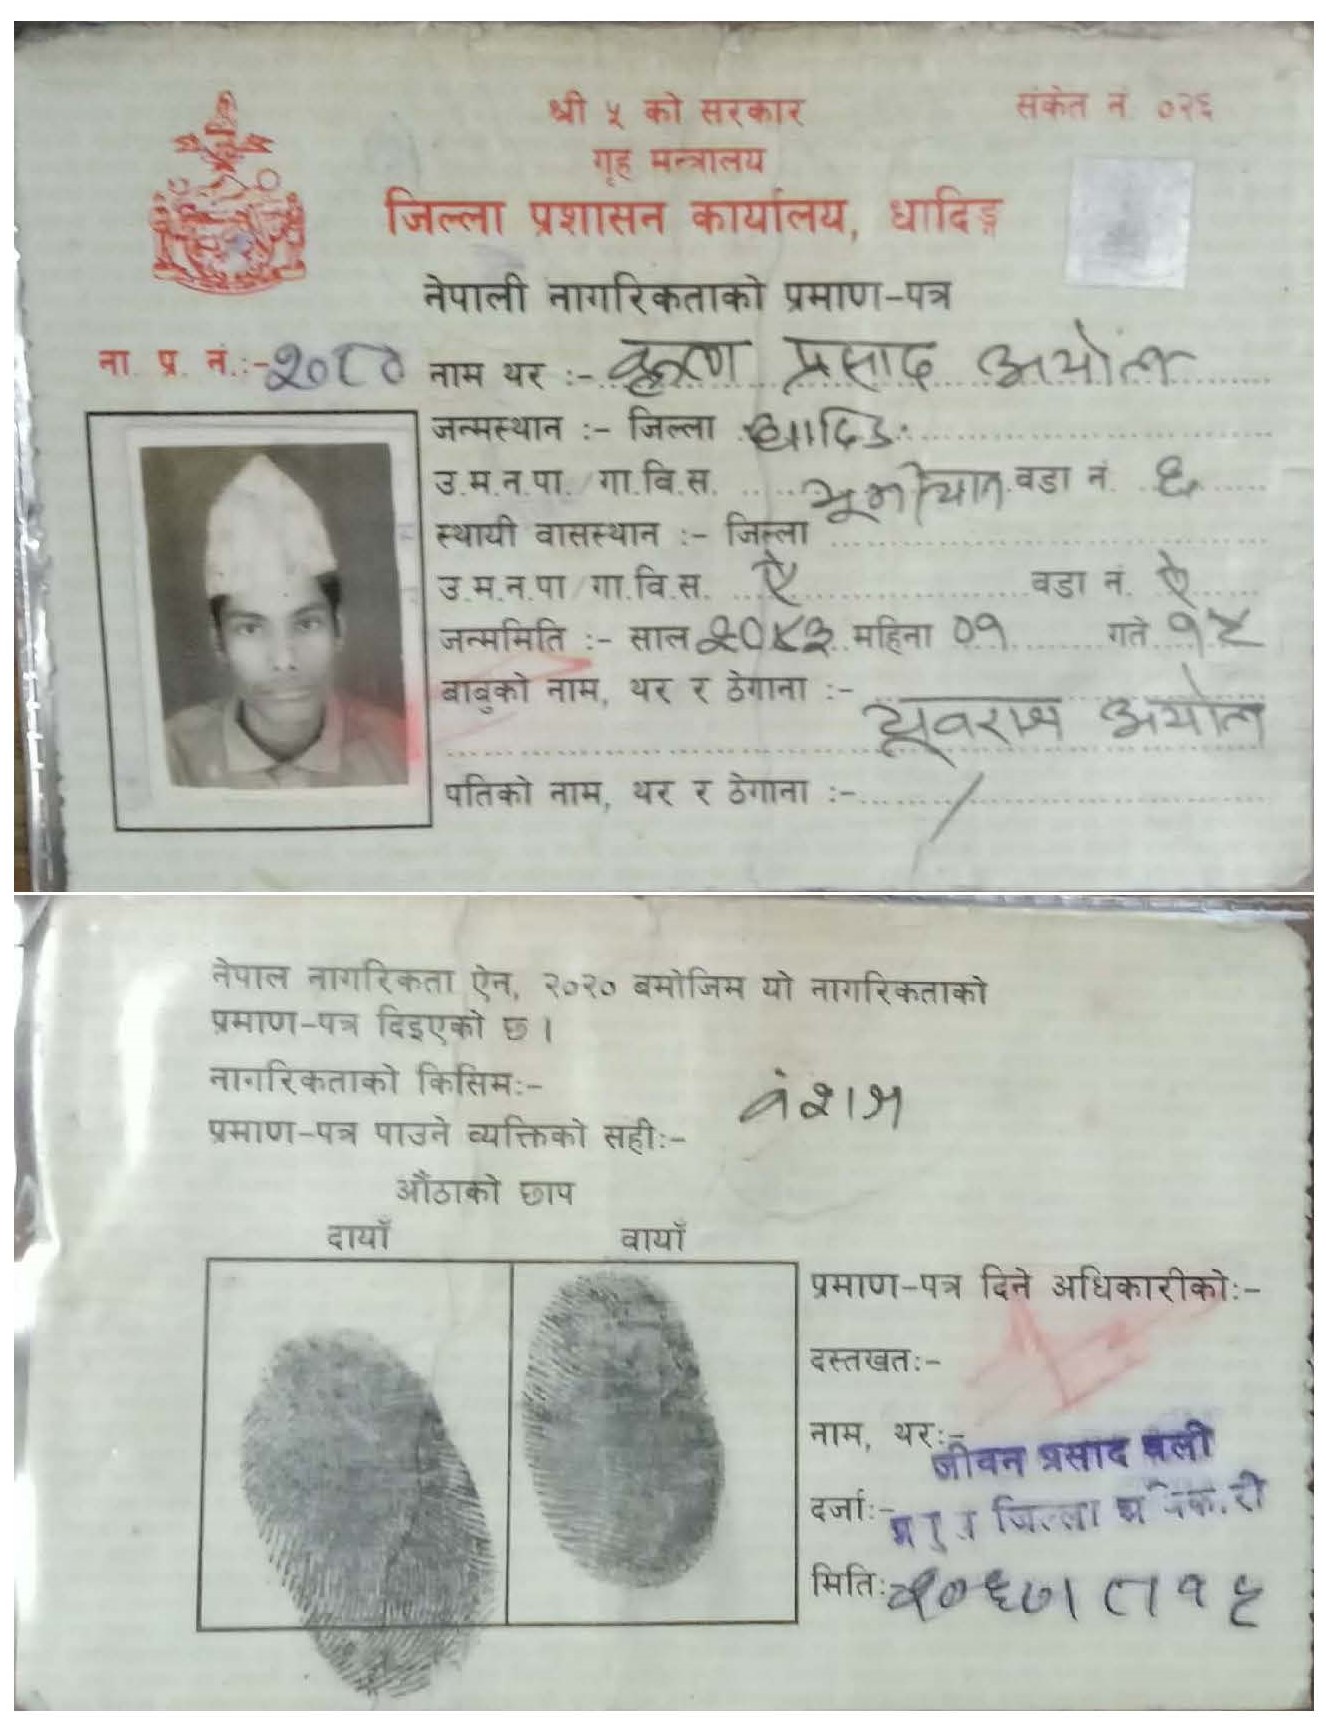 श्री ५ को सरकार
संकेत नं. ०२६
गृह मन्त्रालय
जिल्ला प्रशासन कार्यालय, धादिङ्ग
नेपाली नागरिकताको प्रमाण-पत्र
ना. प्र. नं.:- २०८०
नाम थर :- कृष्ण प्रसाद अर्याल
जन्मस्थान :- जिल्ला धादिङ
उ.म.न.पा./गा.वि.स. वडा नं. ६
स्थायी वासस्थान :- जिल्ला
उ.म.न.पा/गा.वि.स. ऐ वडा नं. ऐ
जन्ममिति :- साल २०४३ महिना ०१ गते १५
बाबुको नाम, थर र ठेगाना :-
यूवराज अर्याल
पतिको नाम, थर र ठेगाना :- /
नेपाल नागरिकता ऐन, २०२० बमोजिम यो नागरिकताको
प्रमाण-पत्र दिइएको छ ।
नागरिकताको किसिम:- वंशज
प्रमाण-पत्र पाउने व्यक्तिको सही:-
औंठाको छाप
दायाँ वायाँ
प्रमाण-पत्र दिने अधिकारीको:-
दस्तखत:-
नाम, थर:- जीवन प्रसाद वली
दर्जा:- जिल्ला
मिति: २०६७।८।१६